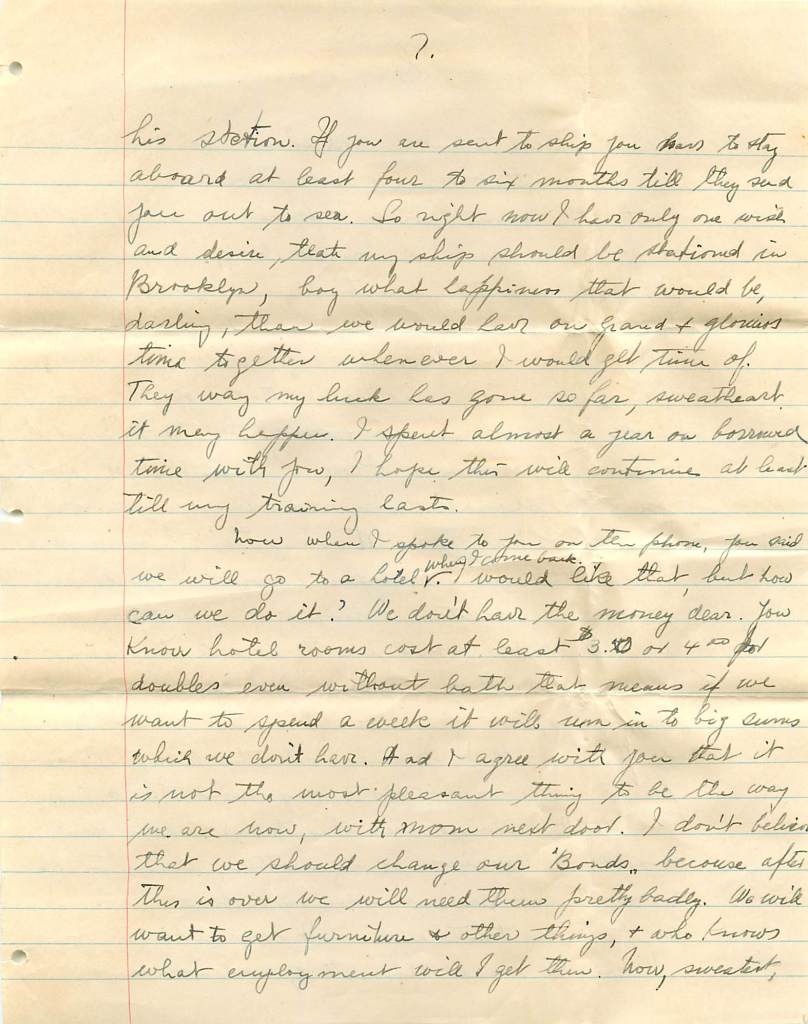 7.
his station. If you are sent to ship you have to stay
aboard at least four to six months till they send
you out to sea. So right now I have only one wish
and desire, that my ship should be stationed in
Brooklyn, boy what happiness that would be,
darling, than we would have on grand & glorious
time together when ever I would get time of.
They way my luck has gone so far, sweatheart,
it may happen. I spent almost a year on borrowed
time with you, I hope this will continue at least
till my training lasts.
Now when I spoke to you on the phone, you said
when I come back.
we will go to a hotel. I would like that, but how
can we do it? We don't have the money dear. You
Know hotel rooms cost at least $3.50 or 4 00 for
doubles even without bath that means if we
want to spend a week it will run in to big sums
which we don't have. And I agree with you that it
is not the most pleasant thing to be the way
we are now, with mom next door. I don't believe
that we should change our "Bonds„ because after
this is over we will need them pretty badly. We will
want to get furniture & other things, & who Knows
what employment will I get then. Now, sweatest,